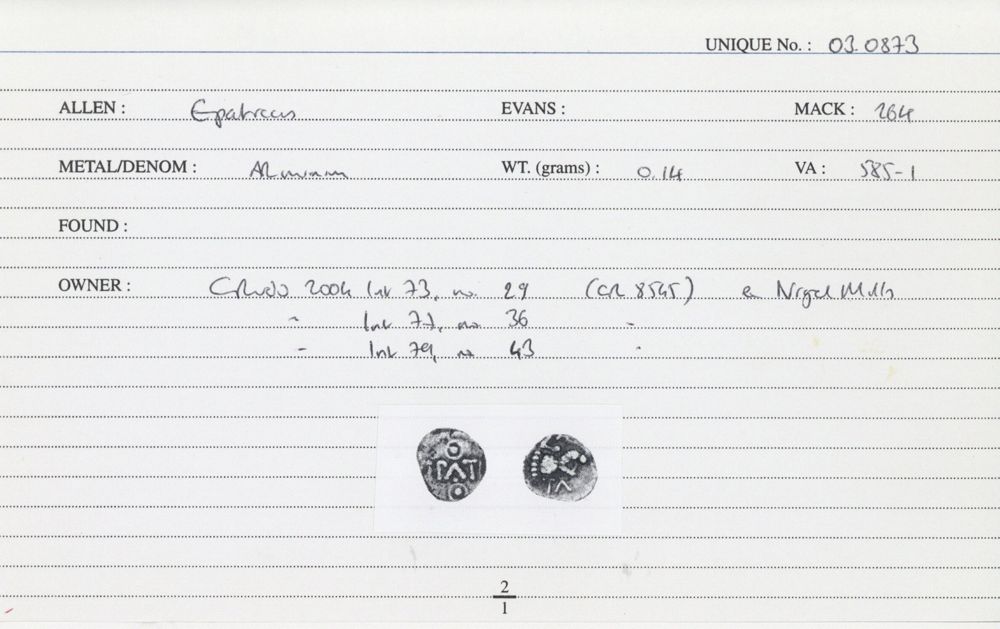 UNIQUE No. : 03.0873
ALLEN : Epaticcus EVANS : MACK : 264
METAL/DENOM : AR minim WT. (grams) : 0.14 VA : 585-1
FOUND :
OWNER : 2004 73, no. 29 (CR 8545) ex Nigel Mills
" 77, no. 36 "
" 79, no 43 "
O
PAT
O
VA
2
1